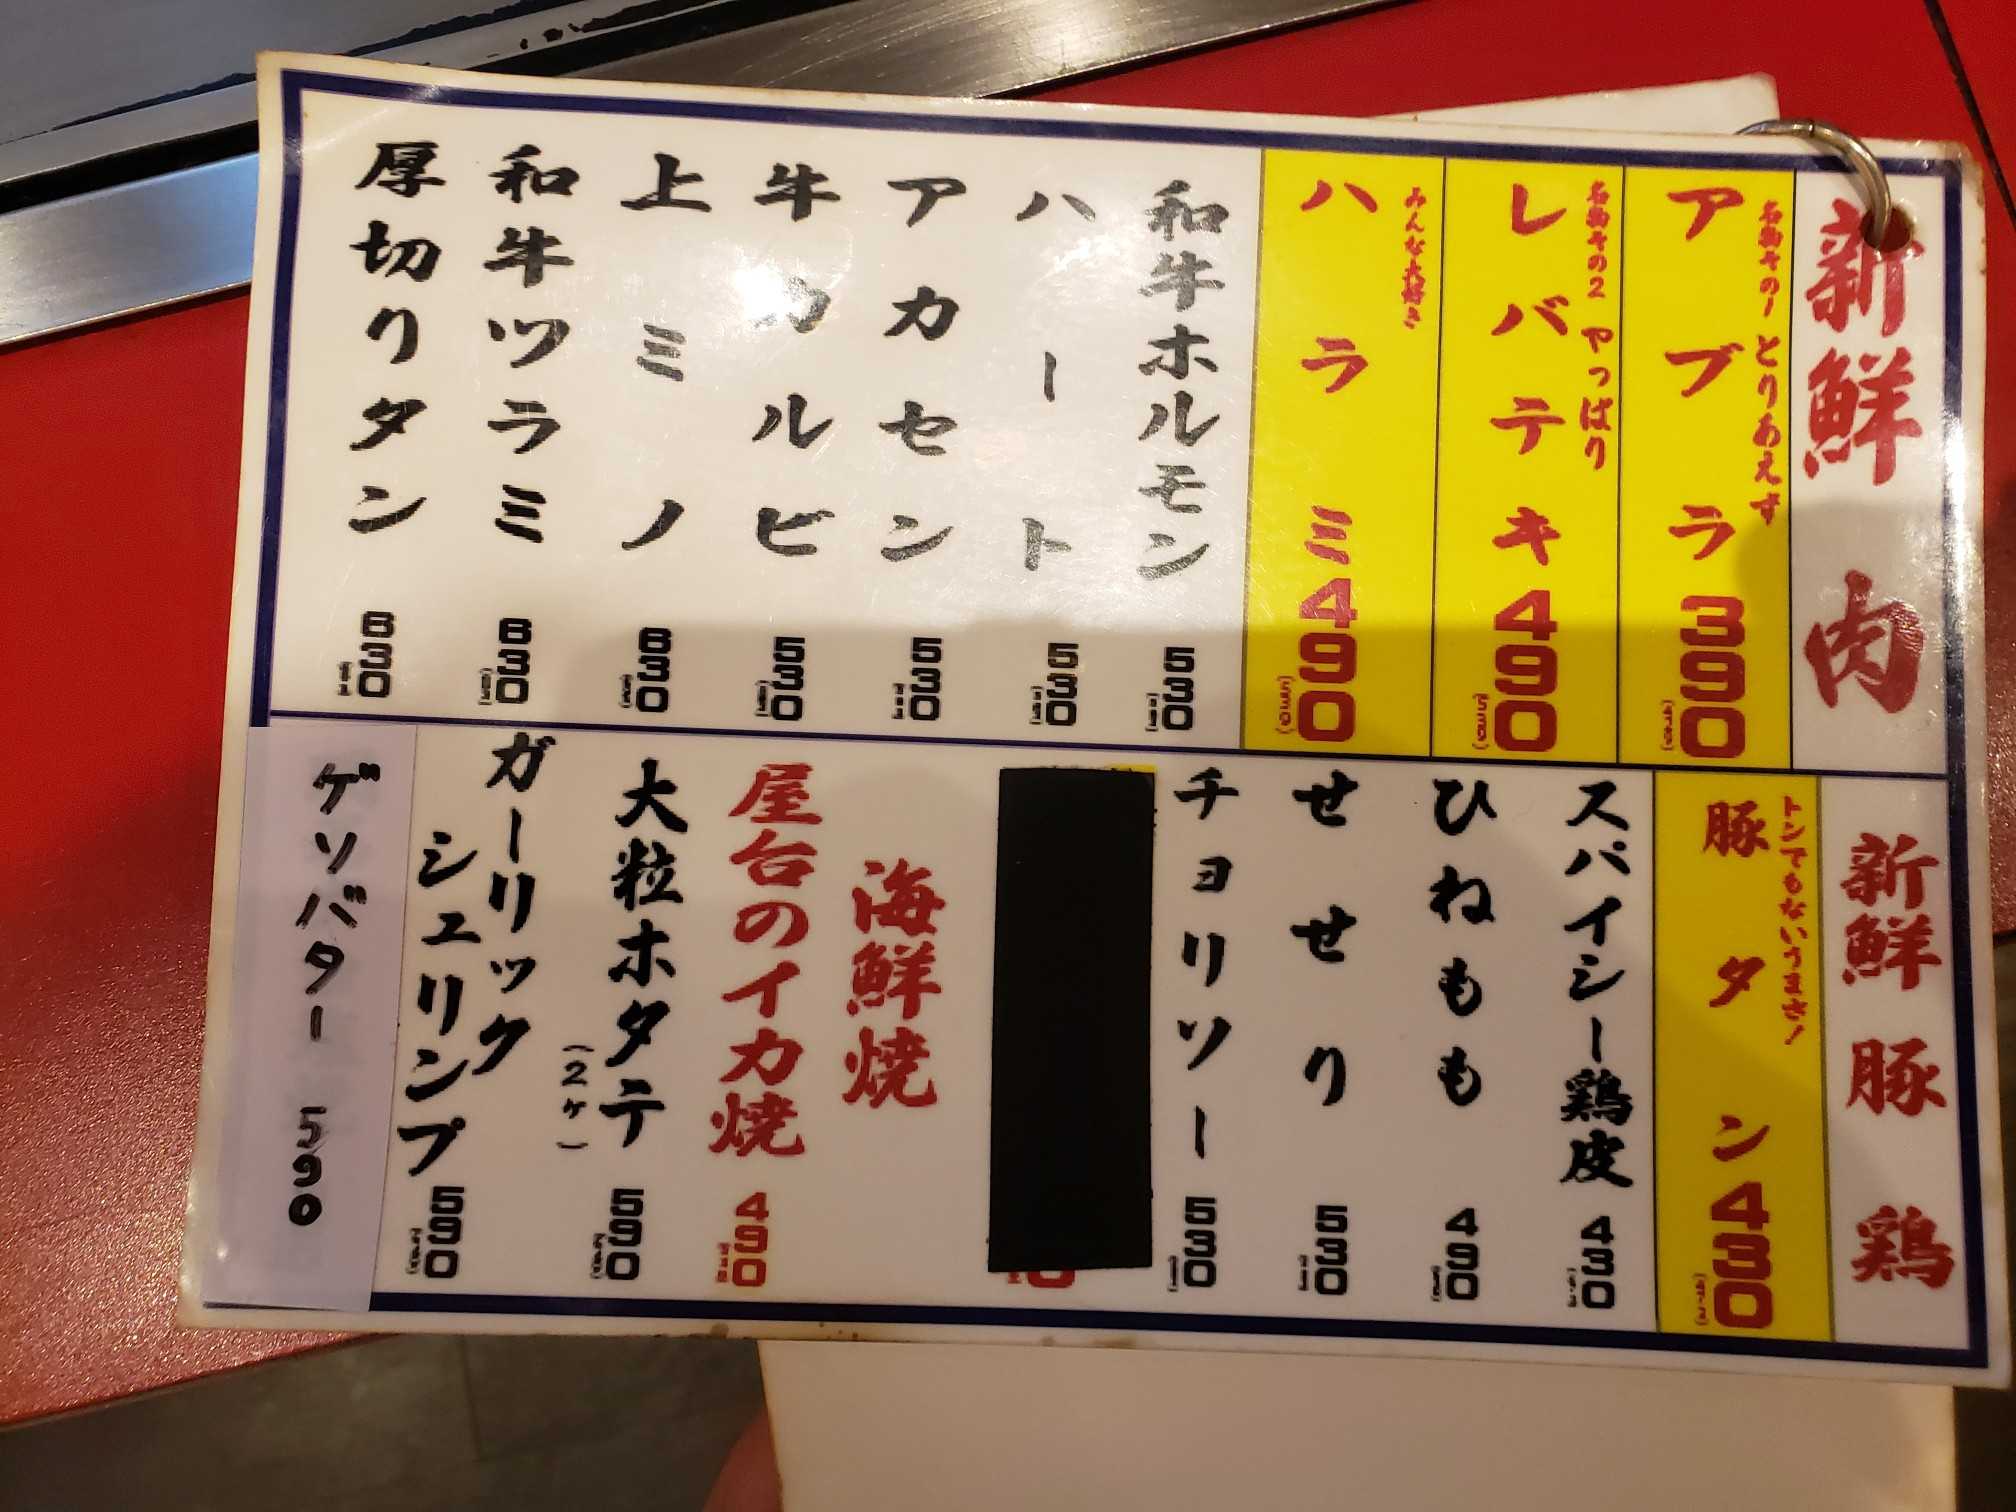 新鮮肉
名物その1 とりあえず
アブラ 390
名物その2 やっぱり
レバテキ 490
みんな大好き
ハラミ 490
和牛ホルモン 530
ハート 530
アカセン 530
牛カルビ 530
上ミノ 630
和牛ツラミ 630
厚切りタン 630
新鮮豚鶏
トンでもないうまさ!
豚タン 430
スパイシー鶏皮 430
ひねもも 490
せせり 530
チョリソー 530
海鮮焼
屋台のイカ焼 490
大粒ホタテ
(2ヶ) 590
ガーリック
シュリンプ 590
ゲソバター 590